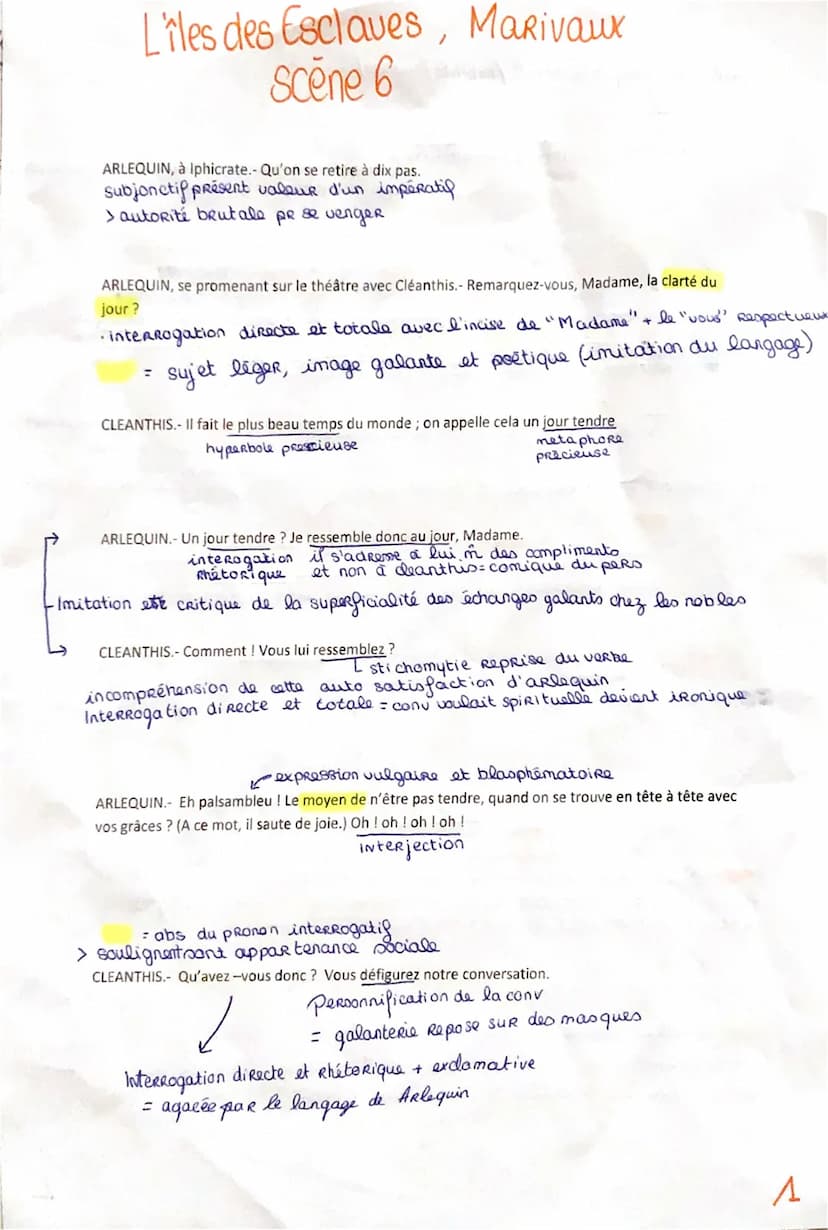 L'îles des Esclaves, Marivaux
Scène 6
ARLEQUIN, à Iphicrate.- Qu'on se retire à dix pas.
subjonctif présent valeur d'un impératif
> autorité brutale pr se venger
ARLEQUIN, se promenant sur le théâtre avec Cléanthis.- Remarquez-vous, Madame, la clarté du
jour ?
· interrogation directe et totale avec l'incise de "Madame" + le "vous" respectueux
= sujet léger, image galante et poétique (imitation du langage)
CLEANTHIS.- Il fait le plus beau temps du monde ; on appelle cela un jour tendre
hyperbole precieuse metaphore
précieuse
ARLEQUIN.- Un jour tendre ? Je ressemble donc au jour, Madame.
interogation il s'adresse à lui m̂ des compliments
rhétorique et non à cleanthis = comique du pers
Imitation et critique de la superficialité des échanges galants chez les nobles
CLEANTHIS.- Comment ! Vous lui ressemblez ?
stichomytie reprise du verbe
incompréhension de cette auto satisfaction d'arlequin
Interrogation directe et totale = conv voulait spirituelle devient ironique
expression vulgaire et blasphématoire
ARLEQUIN.- Eh palsambleu ! Le moyen de n'être pas tendre, quand on se trouve en tête à tête avec
vos grâces ? (A ce mot, il saute de joie.) Oh ! oh ! oh ! oh !
interjection
= abs du pronon interrogatif
> soulignent sont appartenance sociale
CLEANTHIS.- Qu'avez –vous donc ? Vous défigurez notre conversation.
Personnification de la conv
= galanterie repose sur des masques
Interrogation directe et rhétorique + exclamative
= agacée par le langage de Arlequin
1